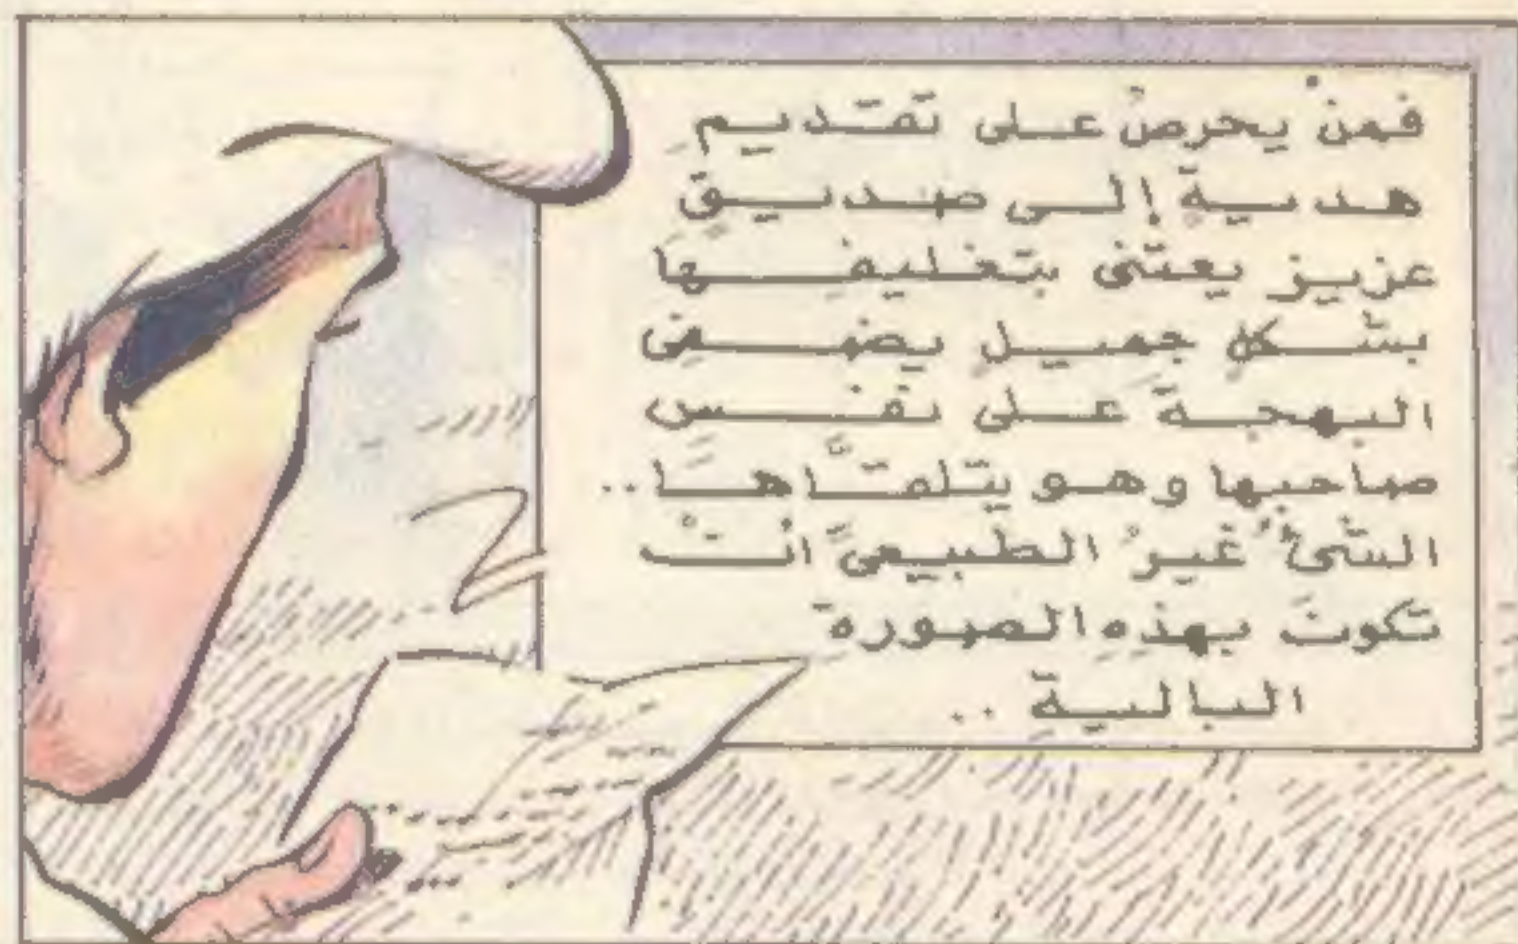 فمنْ يحرصُ على تقديمِ
هديةٍ إلى صديقٍ
عزيزٍ يعتنى بتغليفِها
بشكلٍ جميلٍ يضفى
البهجةَ على نفسِ
صاحبِها وهو يتلقَّاها..
الشىءُ غيرُ الطبيعىِّ انْ
تكونَ بهذِهِ الصورةِ
الباليةِ ..